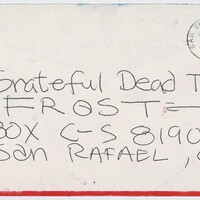 Grateful Dead T
FROST
BOX C-S 8190
San RAFAEL,